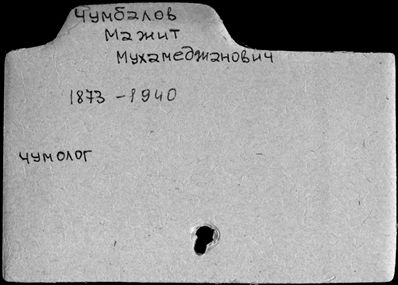 Чумбалов
Мажит
Мухамеджанович
1873-1940
чумолог